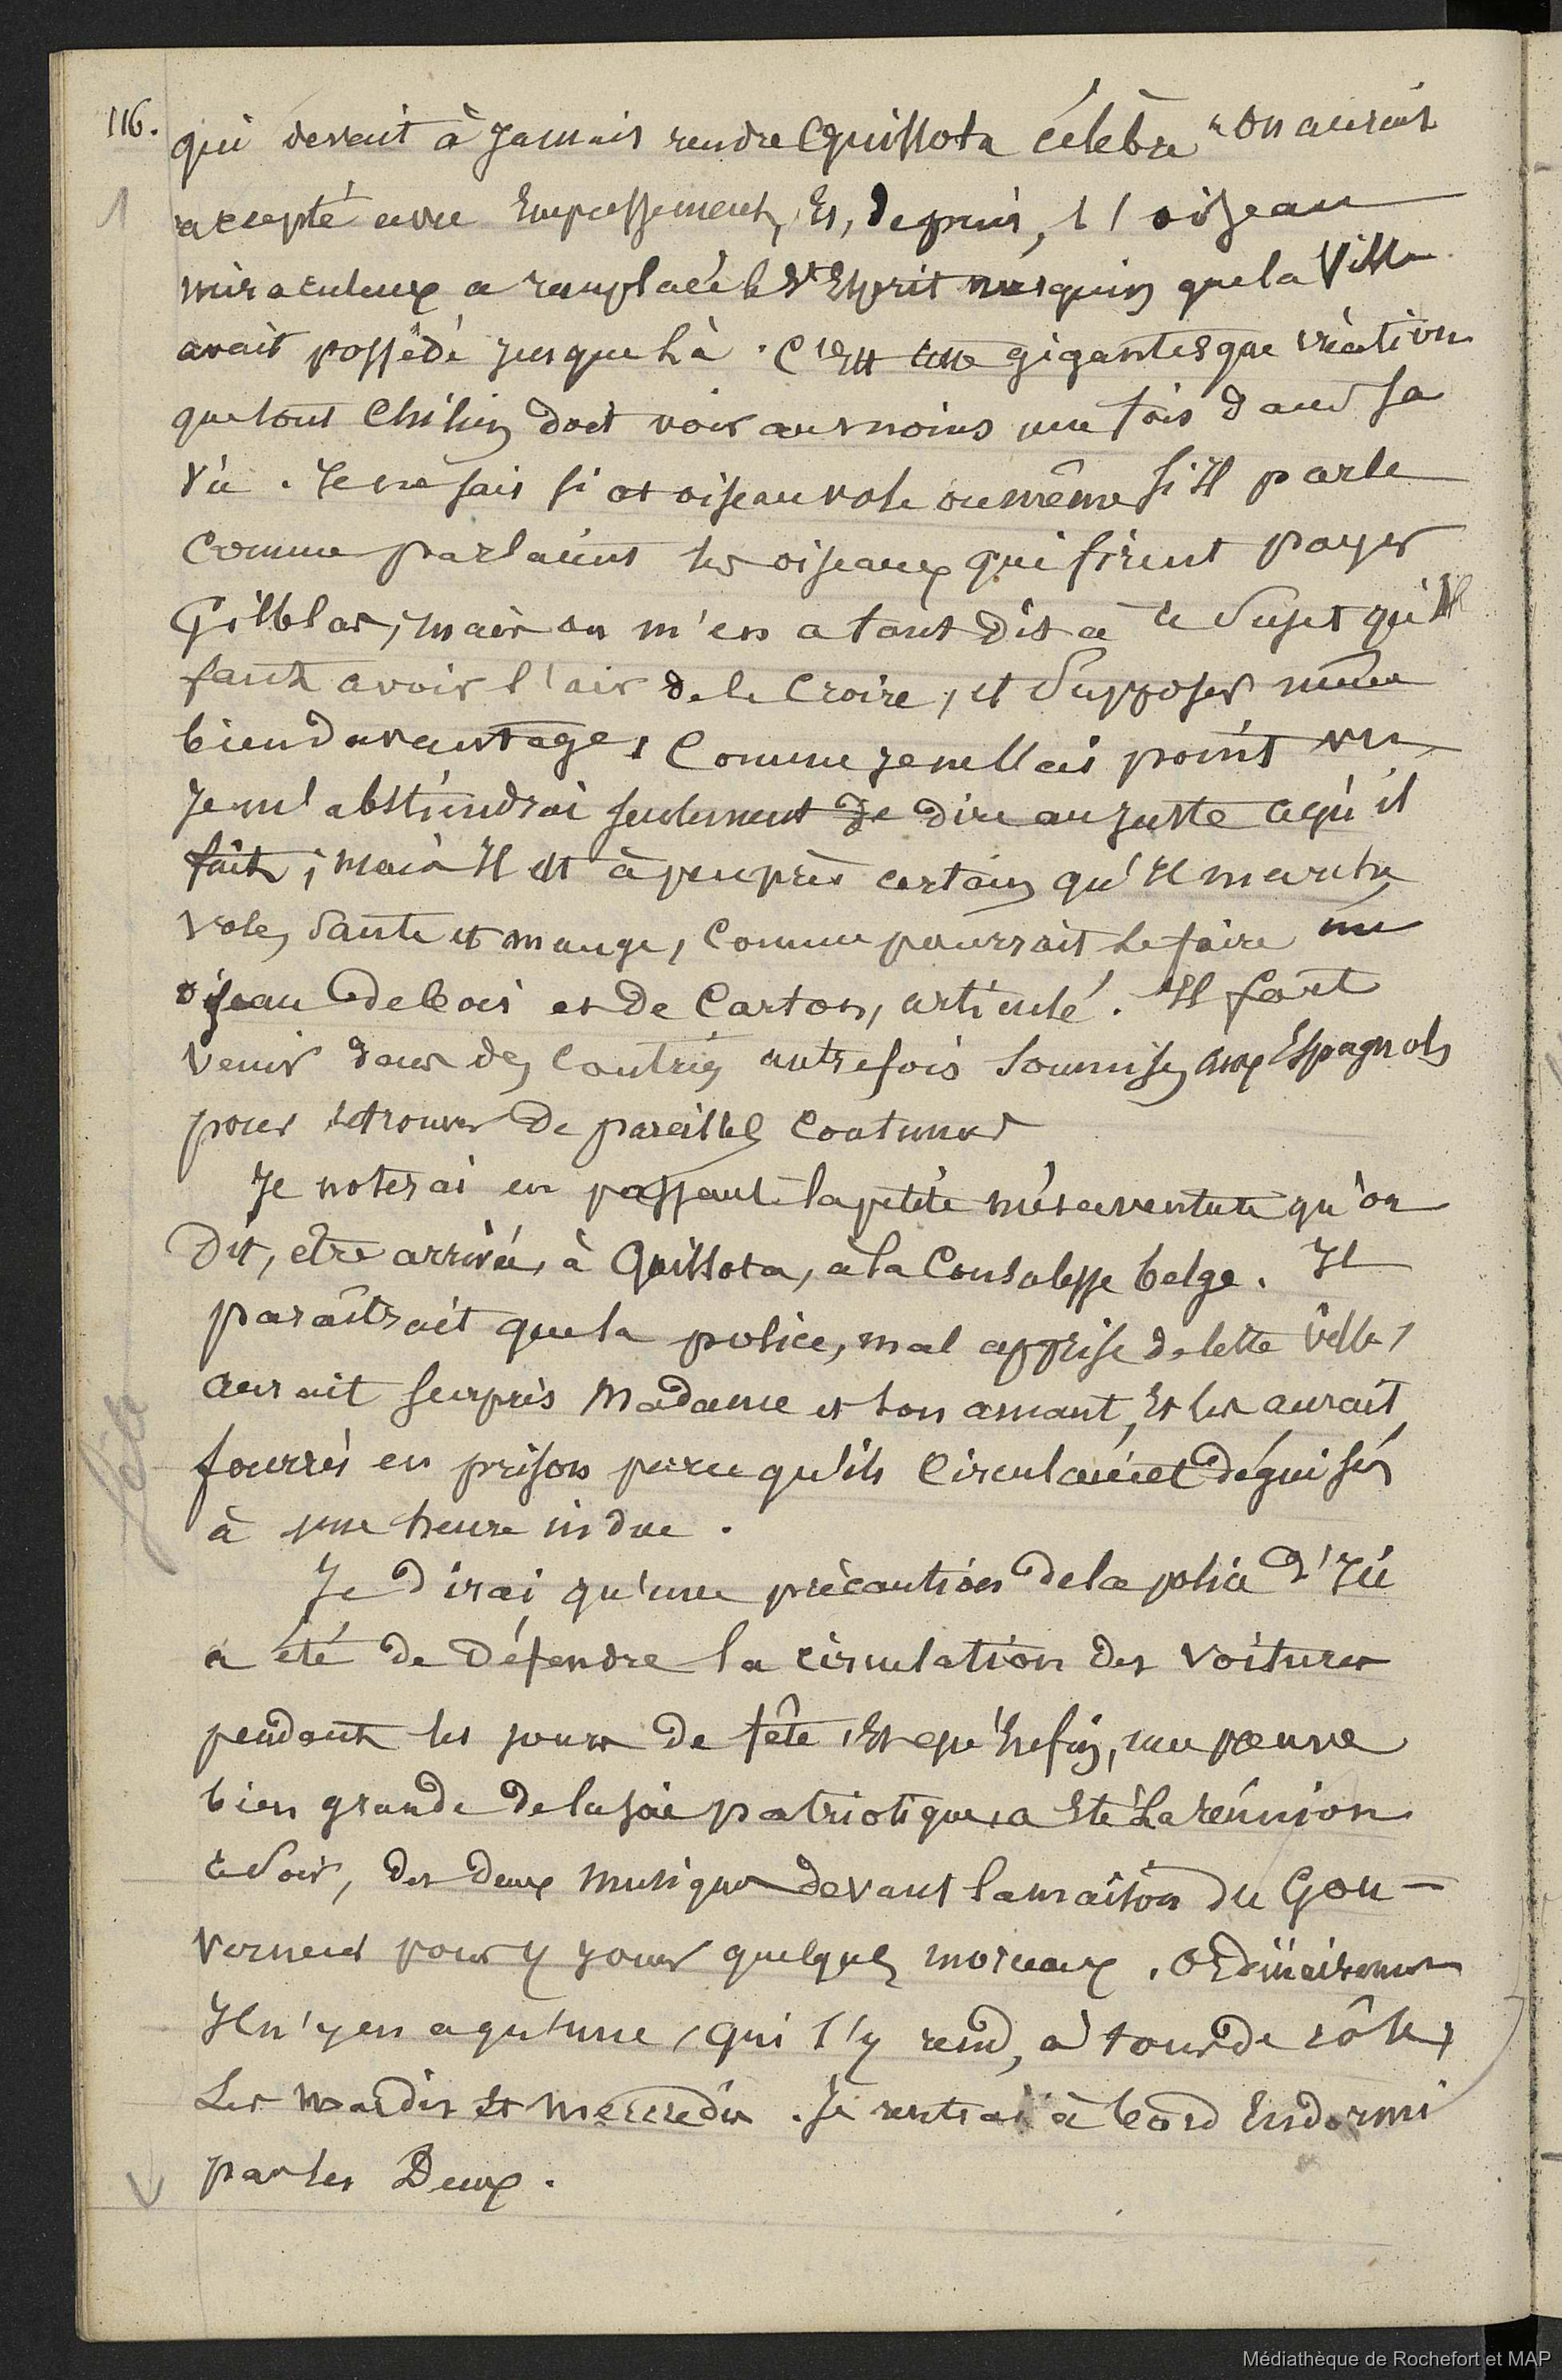 116.
qui devait à jamais rendre Quillota célèbre. on aurait
accepté avec Empressement, Et, depuis, l'oiseau
miraculeux a remplacé le St Esprit mesquin que la Ville
avait possédé jusque là. C'est une gigantesque création
que tout Chilien doit voir au moins une fois dans sa
vie. Je ne sais si cet oiseau vole ou même s'il parle
comme parlaient les oiseaux qui firent payer
Gilblas; mais on m'en a tant dit à ce Sujet qu'il
faut avoir l'air de le Croire, et Supposer même
bien davantage. Comme je ne l'ai point vu
Je m'abstiendrai seulement de dire au juste ce qu'il
fait; mais Il est à peu près certain qu'Il marche,
vole, Saute et mange, Comme pourrait le faire un
oiseau de bois et de Carton, articulé. Il faut
venir dans des Contrées autrefois Soumises aux Espagnols
pour retrouver de pareilles Coutumes
Je noterai en passant la petite mésaventure qu'on
Dit, être arrivée, à Quillota, à la Consulesse belge. Il
paraîtrait que la police, mal apprise de cette ville,
aurait surpris Madame et son amant, Et les aurait
fourrés en prison parce qu'ils Circulaient déguisés
à une heure indue.
Je dirai qu'une précaution de la police d'Ici
a été de Défendre la circulation des voitures
pendant les jours de fête, Et qu'Enfin, une preuve
bien grande de la joie patriotique, a Eté la réunion
ce Soir, des deux musiques devant la maison du Gou-
verneur pour y jouer quelques morceaux. Ordinairement
Il n'y en a qu'une, qui s'y rend, à tour de rôle,
Les Mardis Et Mercredis. Je rentrai à bord Endormi
par les Deux.
Médiathèque de Rochefort et MAP